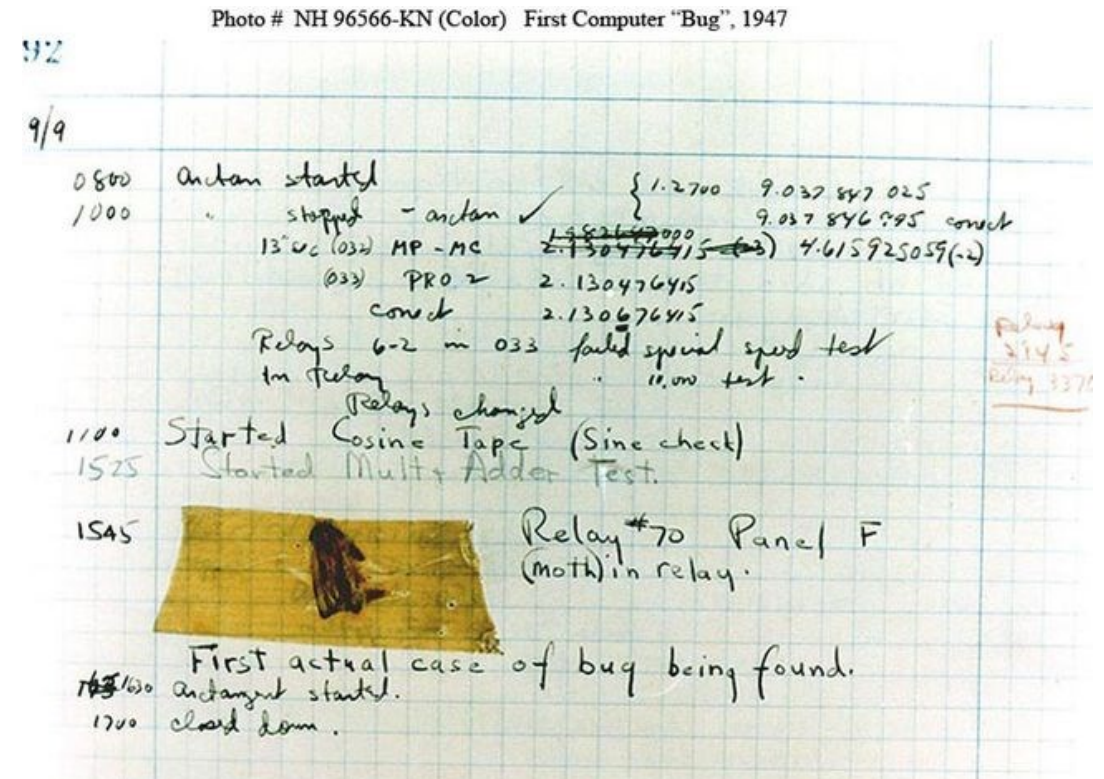 Photo # NH 96566-KN (Color) First Computer “Bug”, 1947
92
9/9
0800 arctan started
1000 " stopped - arctan ✓ { 1.2700 9.037 847 025
9.037 846 995 correct
13" uc (032) MP - MC 2.130476415 (-3) 4.615925059(-2)
(033) PRO 2 2.130476415
correct 2.130676415
Relays 6-2 in 033 failed special speed test
In relay " 10,000 test .
Relays changed
Relay
2145
Relay 3370
1100 Started Cosine Tape (Sine check)
1525 Started Mult + Adder Test.
1545 Relay #70 Panel F
(moth) in relay.
First actual case of bug being found.
1630 arctangent started.
1700 closed down.